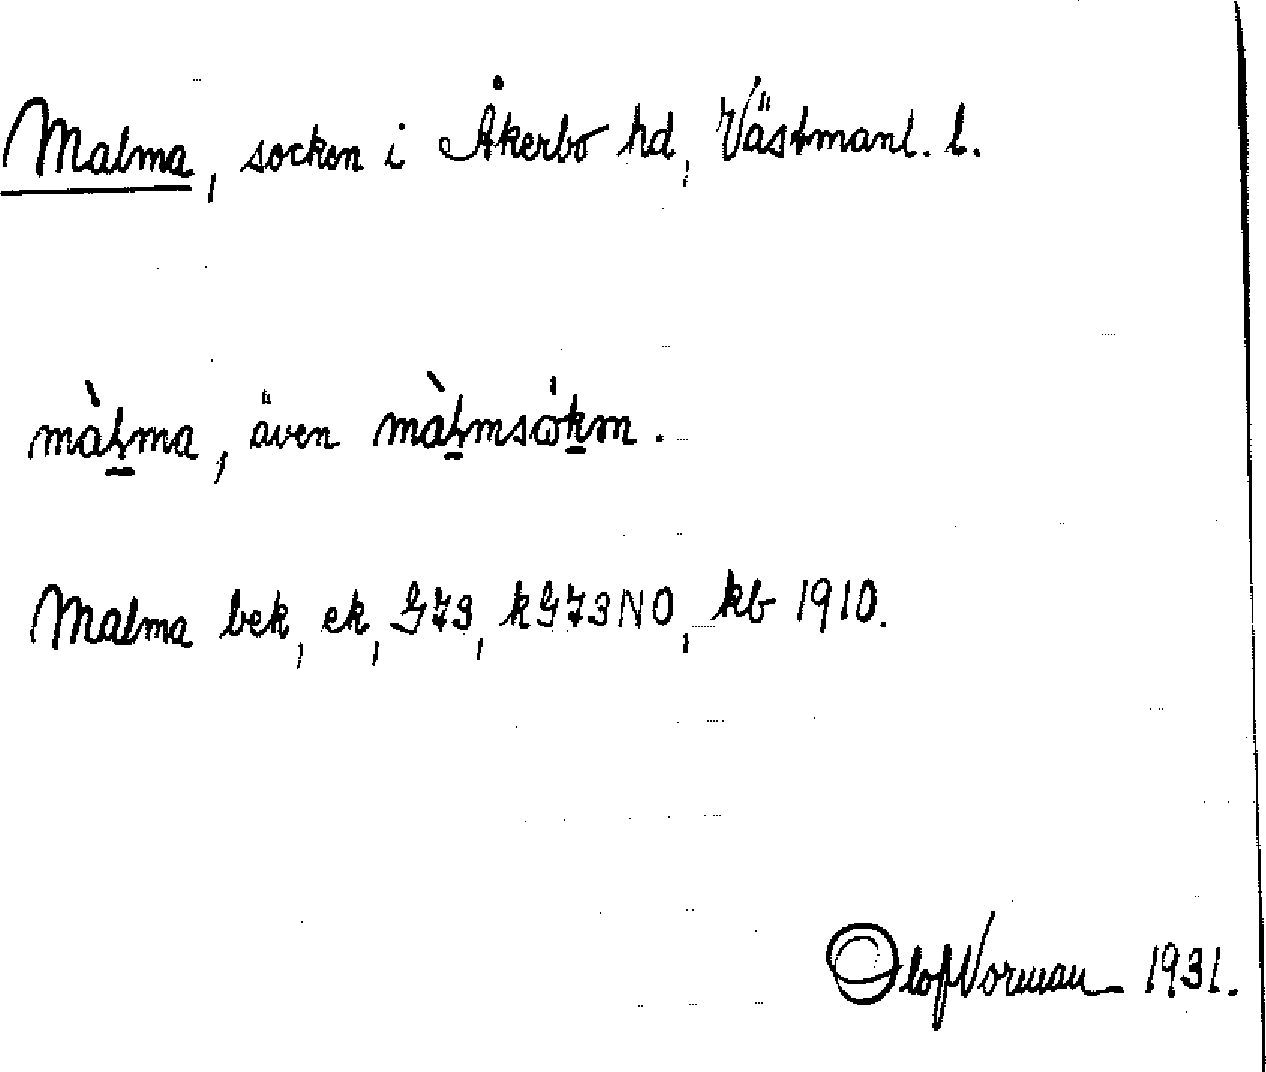 Malma, socken i Åkerbo hd, Västmanl. l.
màḻma, även màḻmsóḵm.
Malma bek, ek, GZ3, kGZ3NO, kb 1910.
Olof Norman 1931.